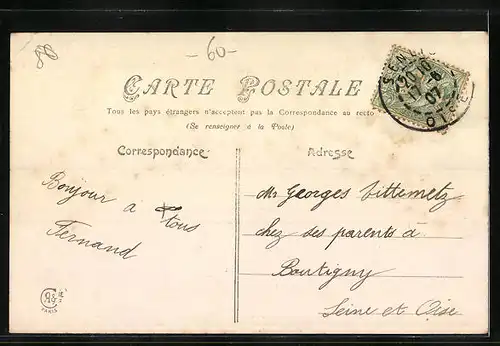 60-
CARTE POSTALE
Tous les pays étrangers n'acceptent pas la Correspondance au recto
(Se renseigner à la Poste)
Correspondance
Adresse
Bonjour
a tous
Fernand
Mr Georges Vittemetz
chez ses parents à
Boutigny
Seine et Oise
SENLIS
OISE
07
PARIS